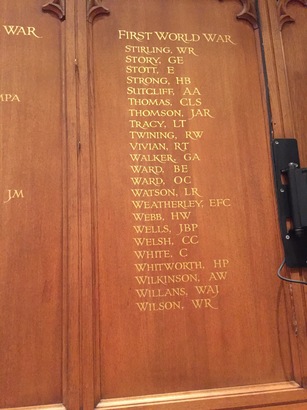 WAR
MPA
JM
FIRST WORLD WAR
STIRLING, WR
STORY, GE
STOTT, E
STRONG, HB
SUTCLIFF, AA
THOMAS, CLS
THOMSON, JAR
TRACY, LT
TWINING, RW
VIVIAN, RT
WALKER, GA
WARD, BE
WARD, OC
WATSON, LR
WEATHERLEY, EFC
WEBB, HW
WELLS, JBP
WELSH, CC
WHITE, C
WHITWORTH, HP
WILKINSON, AW
WILLANS, WAJ
WILSON, WR